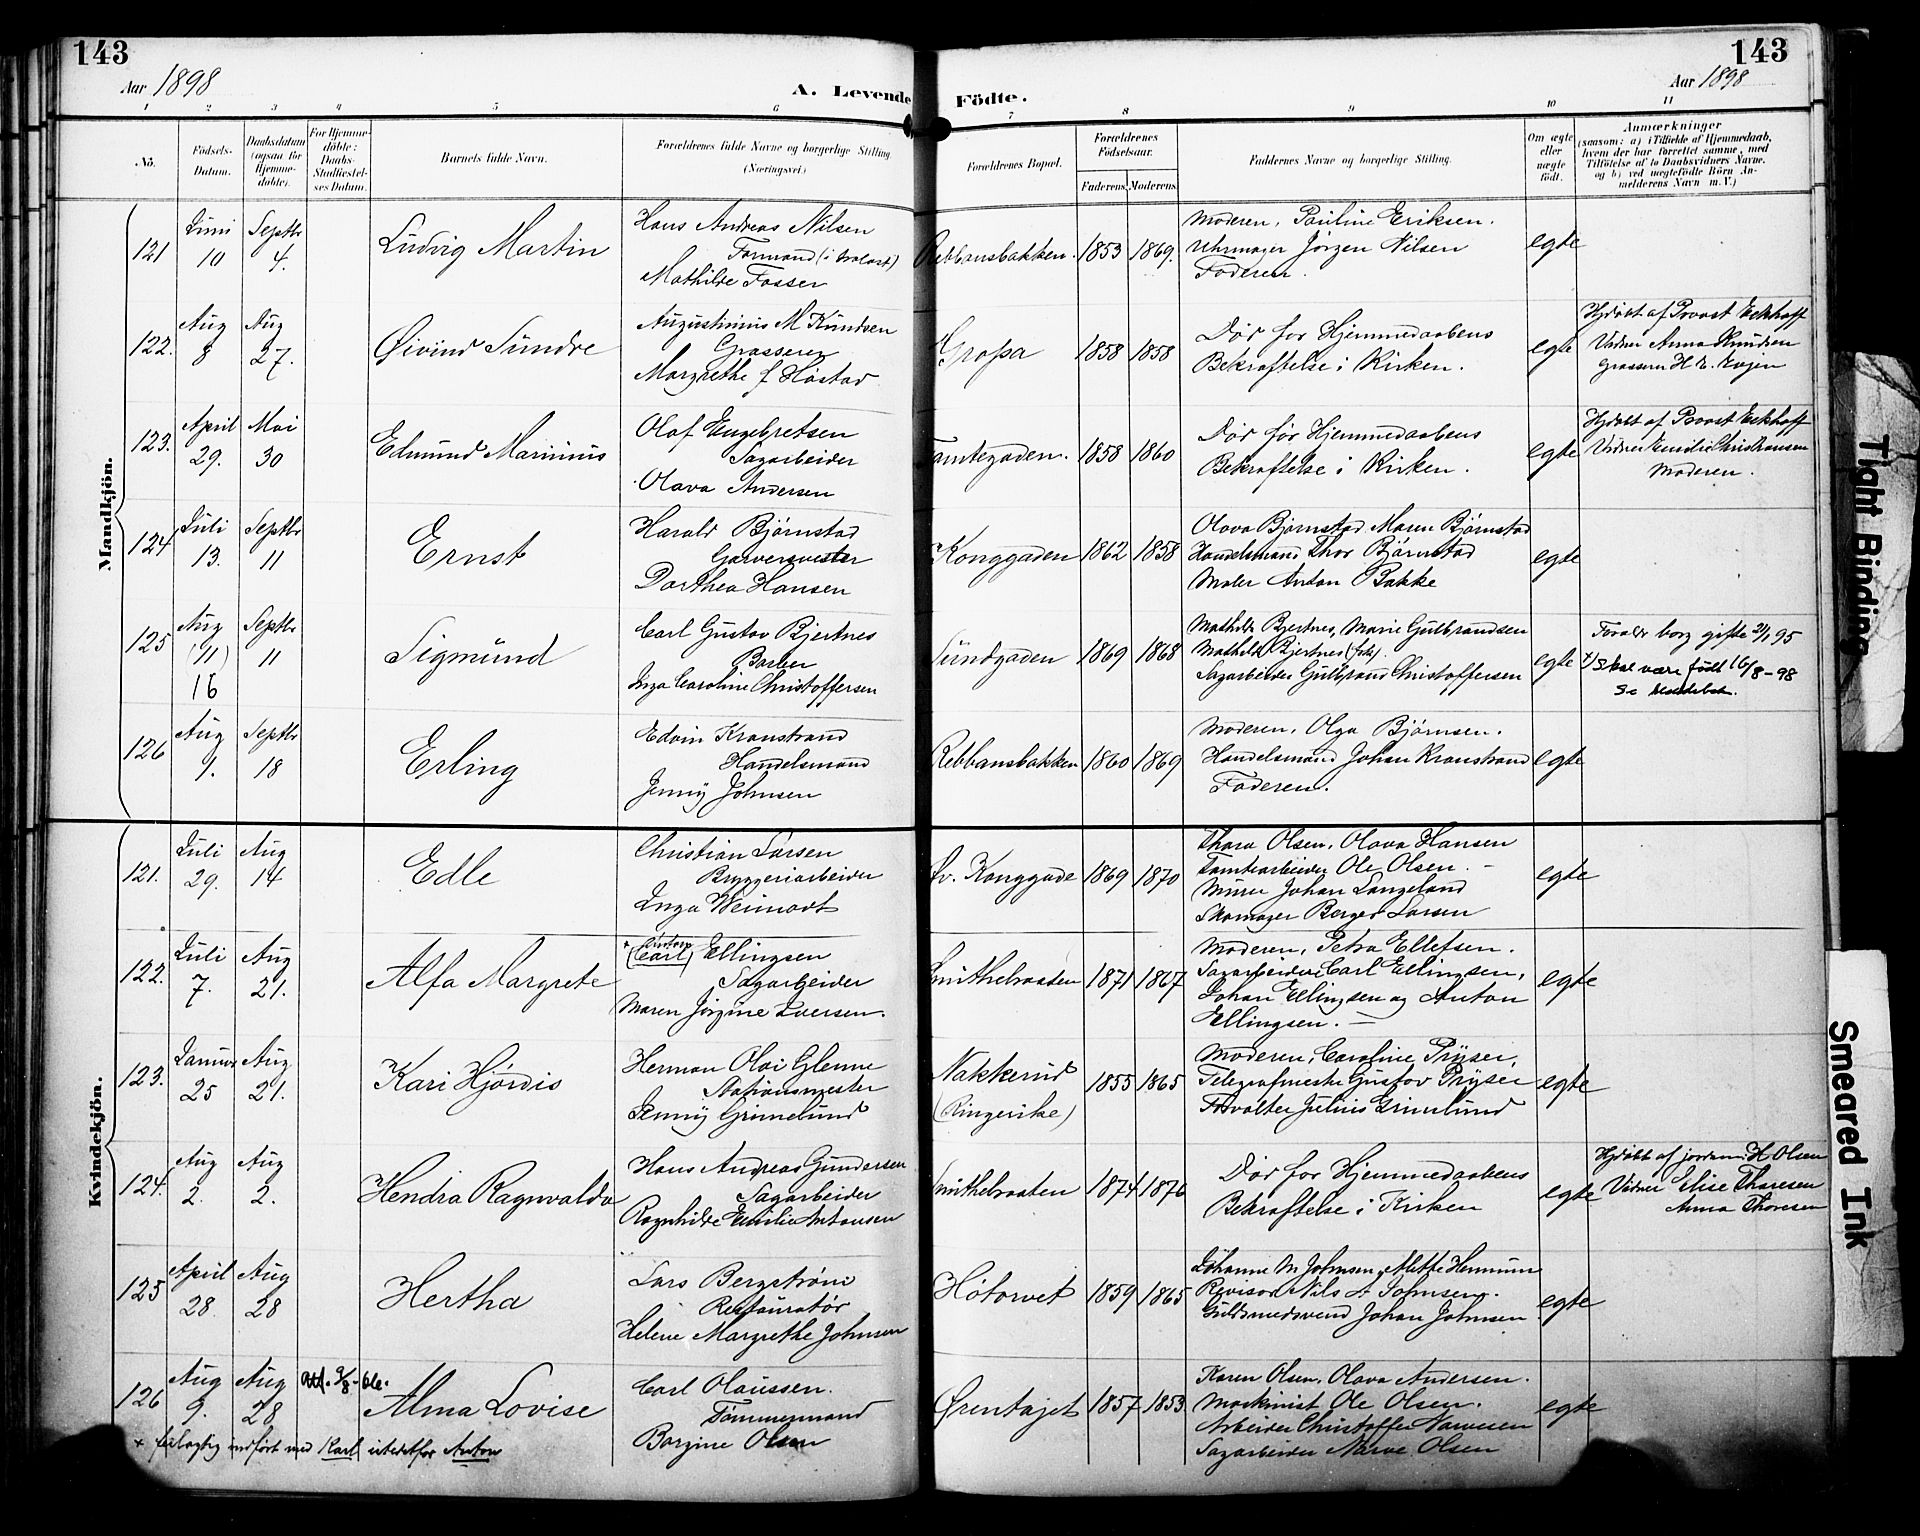 143
143
Aar 1898
A. Levende Födte.
Aar 1898
1 2 3 4 5 6 7 8 9 10 11
No.
Födsels-Datum.
Daabsdatum (ogsaa for Hjemme-døbte).
For Hjemme-døbte: Daabs-Stadfæstel-ses Datum.
Barnets fulde Navn.
Forældrenes fulde Navne og borgerlige Stilling (Næringsvei.)
Forældrenes Bopæl.
Forældrenes Födselsaar.
Faderens. Moderens.
Faddernes Navne og borgerlige Stilling.
Om ægte eller uægte født.
Anmærkninger
(saasom: a) i Tilfælde af Hjemmedaab, hvem der har forrettet samme, med Tilföielse af to Daabsvidners Navne. og b) ved uægtefödte Börn Anmelderens Navn m. V.)
Mandkjön.
121 Juni 10 Septbr 4. Ludvig Martin
Hans Andreas Nilsen
Formand
Mathilde Fosser
Rebbansbakken. 1853 1869.
Moderen, Pauline Eriksen.
Uhrmager Jörgen Nilsen
Faderen.
egte
122. Aug 8 Aug 27. Øivind Sundre
Augustinius M Knudsen
Grosserer
Margrethe f Høstad
Gropa 1858 1858
Dör for Hjemmedaabens
Bekræftelse i Kirken.
egte
Hjdöbt af Provst Eckhoff
Vidner Anna Knudsen
Grosserer H E. Evjen
123. April 29. Mai 30 Edmund Marinius
Olaf Engebretsen
Sagarbeider
Olava Andersen
Tomtegaden. 1858 1860
Dör før Hjemmedaabens
Bekræftelse i Kirken.
egte
Hjdöbt af Provst Eckhoff
Vidner Emilie Christiansen
Moderen.
124 Juli 13. Septbr 11 Ernst
Harald Björnstad
Garversvester
Dorthea Hansen
Konggaden 1862 1858
Olava Björnstad. Maren Björnstad
Handelsmand Thor Björnstad
Maler Anton Bakke
egte
125 Aug (11) 16 Septbr 11 Sigmund
Carl Gustav Bjertnes
Barber
Inga Caroline Christoffersen
Sundgaden 1869 1868
Mathilde Bjertnes, Marie Gulbrandsen
Mathilde Bjertnes
Sagarbeider Gulbrand Christoffersen
egte
Foraldr borg gifte 21/1 95
x) Skal være født 16/8-98
126 Aug 1. Septbr 18 Erling
Edvin Kranstrand
Handelsmand
Jenny Johnsen
Rebbansbakken 1860 1869
Moderen, Olga Björnsen.
Handelsmand Johan Kranstrand
Faderen.
egte
Kvindekjön.
121. Juli 29. Aug 14 Edle
Christian Larsen
Bryggeriarbeider
Inga Weinadt
Öv. Konggade 1869 1870
Thora Olsen, Olava Hansen
Tomtearbeider Ole Olsen.
Murer Johan Langeland
Skomager Berger Larsen
egte
122. Juli 7. Aug 21. Alfa Margrete
x Anton (Carl) Ellingsen
Sagarbeider
Maren Jörgine Iversen.
Smithebraaten 1871 1867
Moderen, Petra Ellefsen.
Sagarbeider Carl Ellingsen,
Johan Ellingsen og Anton
Ellingsen.
egte
123. Januar 25 Aug 21. Kari Hjördis
Herman Olai Glenne
Stationsmester
Jenny Grimelund
Nakkerud
(Ringerike)
1855 1865
Moderen, Caroline Prÿser,
Telegrafmester Gustav Prÿser
Forvalter Julius Grimelund
egte
124. Aug 2. Aug 2. Hendra Ragnvalda
Hans Andreas Gundersen
Sagarbeider
Ragnhilde Emilie Antonsen
Smithebraaten 1874 1876
Dör for Hjemmedaabens
Bekræftelse i Kirken
egte
Hjdöbt af jordm. H Olsen
Vidner Elise Thoresen
Anna Thoresen
125 April 28. Aug 28 Hertha
Lars Bergström
Restauratör
Helene Margrethe Johnsen
Hötorvet 1859 1865
Johanne M Johnsen, Mette Hennum
Revisor Nils A Johnsen.
Guldsmedsvend Johan Johnsen
egte
126 Aug 9. Aug 28 Att. 9/8- Alma Lovise
Carl Olaussen.
Tömmermand
Borgine Olsen
Ørentajet 1857 1853
Karen Olsen, Olava Andersen.
Maskinist Ole Olsen.
Arbeider Christoffer Narvesen
Sagarbeider Narve Olsen
egte
x feilagtig indført med Karl istedetfor Anton
Tight Binding
Smeared Ink